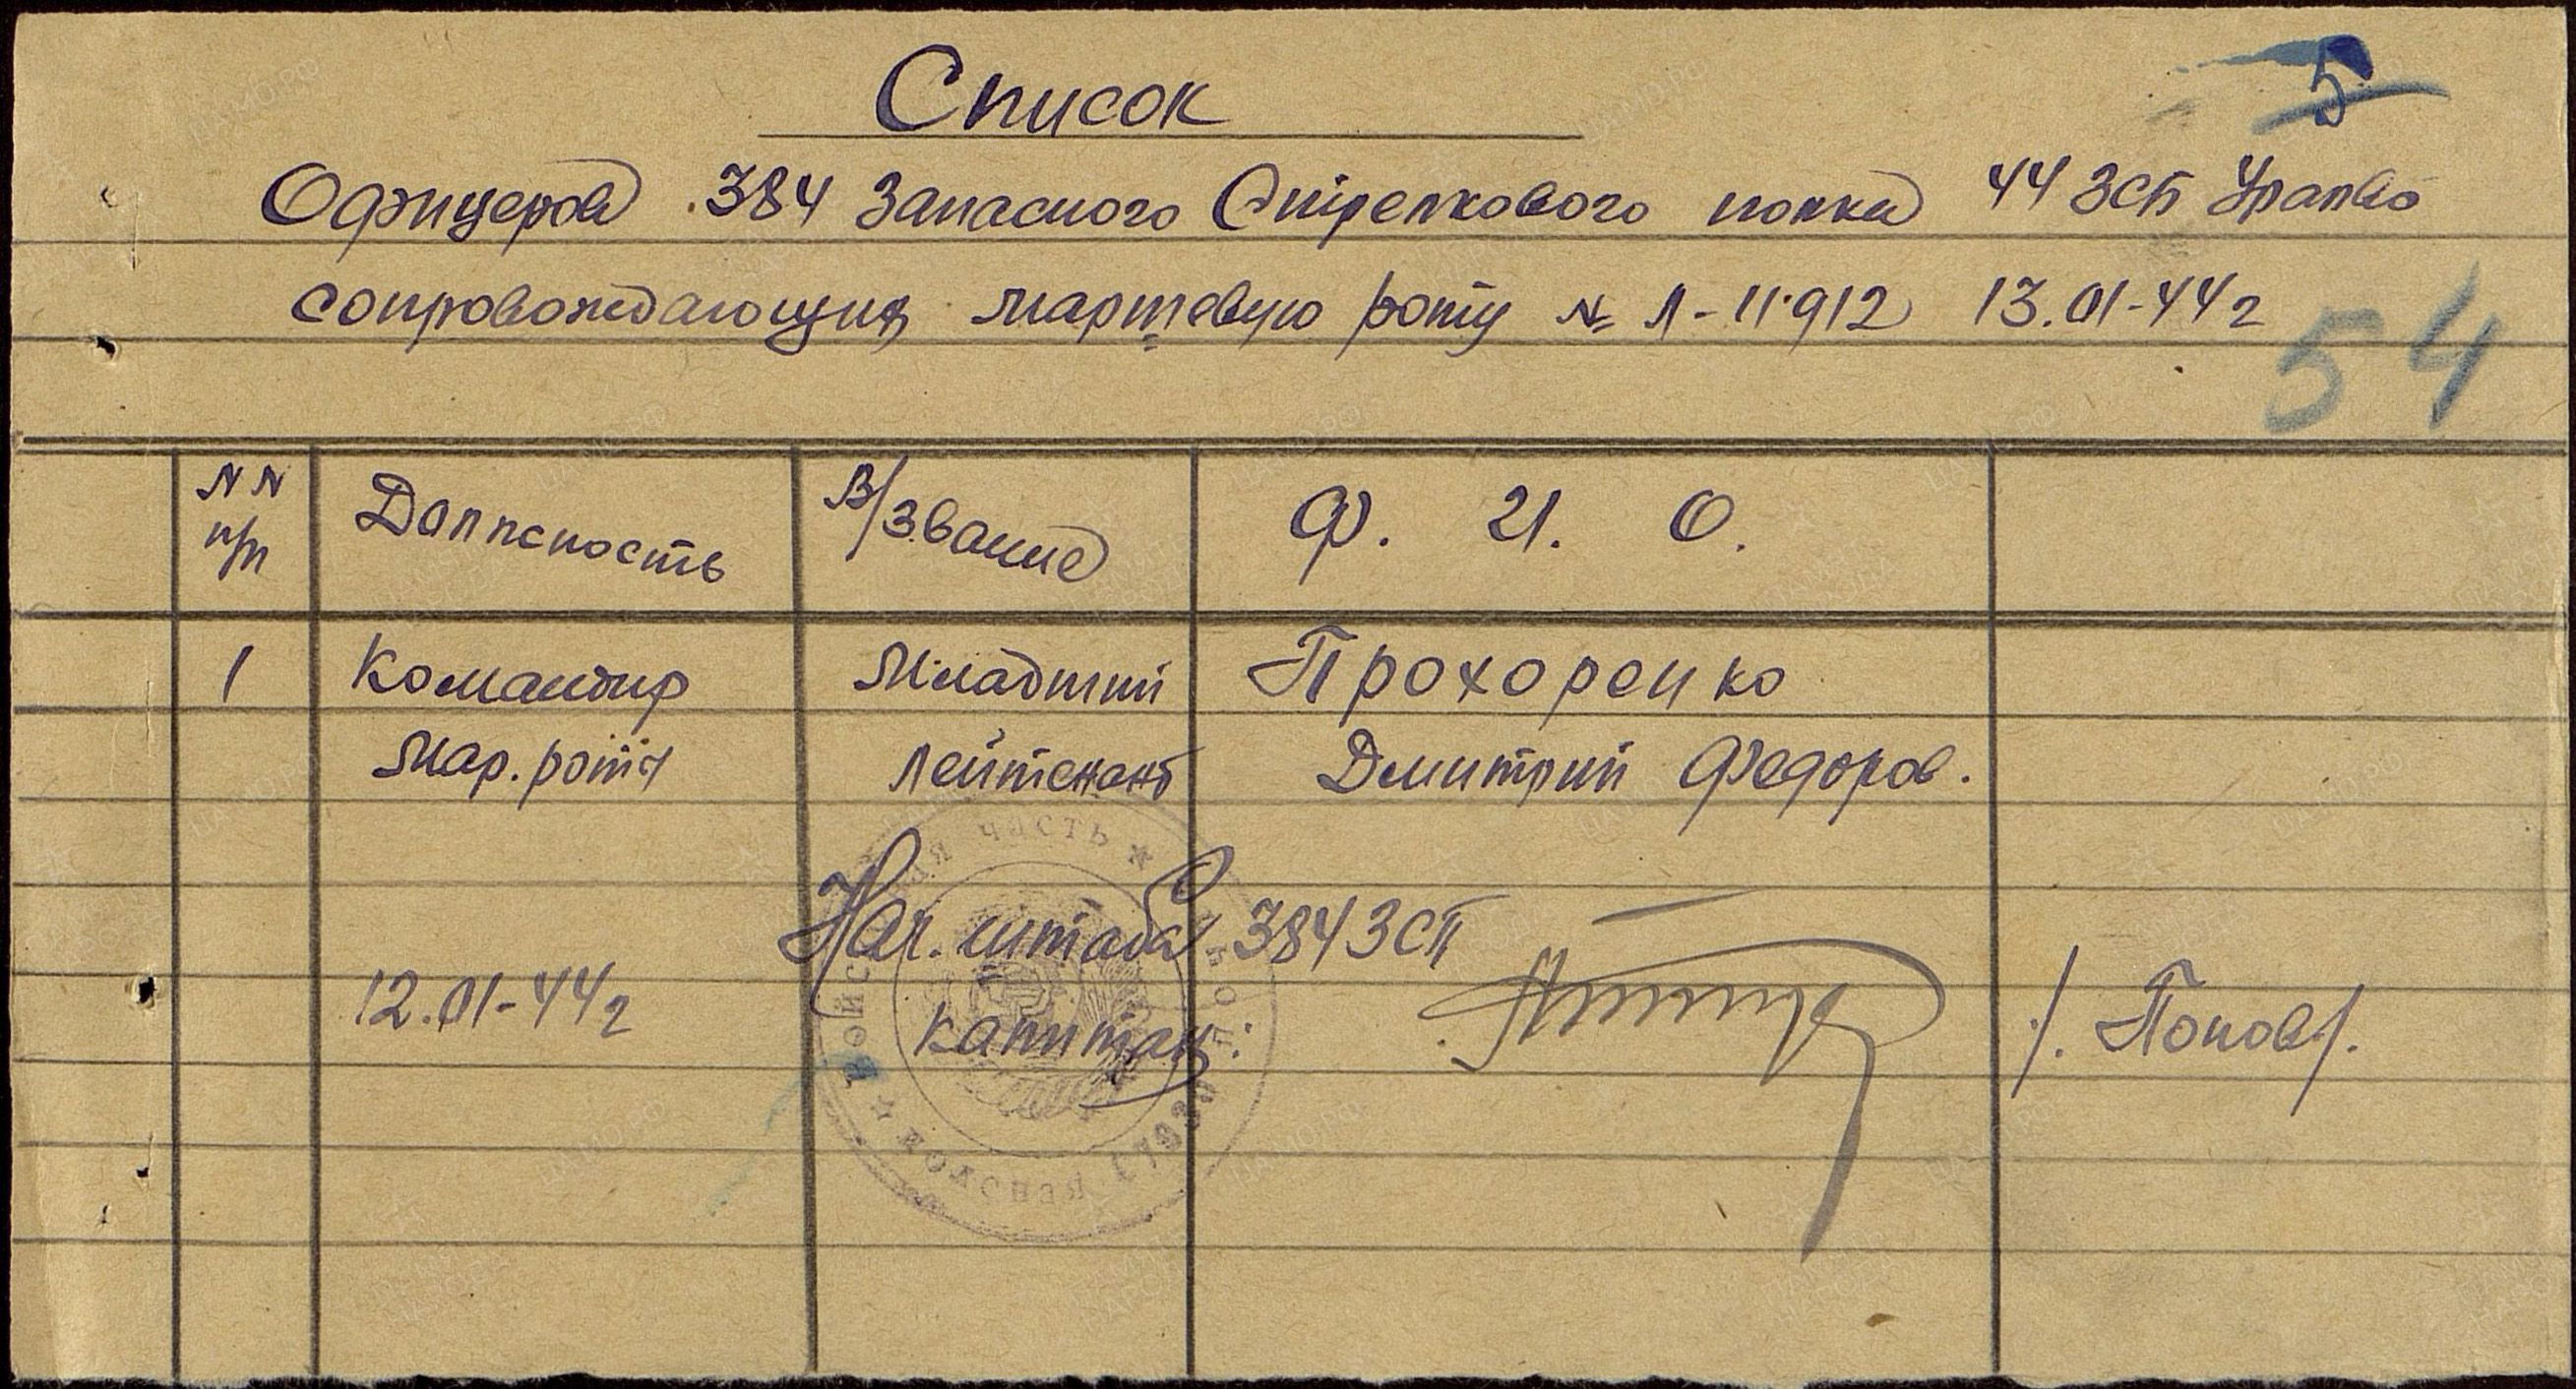 5
Список
Офицеров 384 Запасного Стрелкового полка 44 ЗСБ Уралво
сопровождающих маршевую роту № Л-11912 13.01-44г
54
NN п/п Должность В/Звание Ф. И. О.
1 Командир Младший Прохоренко
Мар. роты Лейтенант Дмитрий Федоров.
Нач. штаба 384 ЗСП
12.01-44г капитан: /. Попов /.
часть